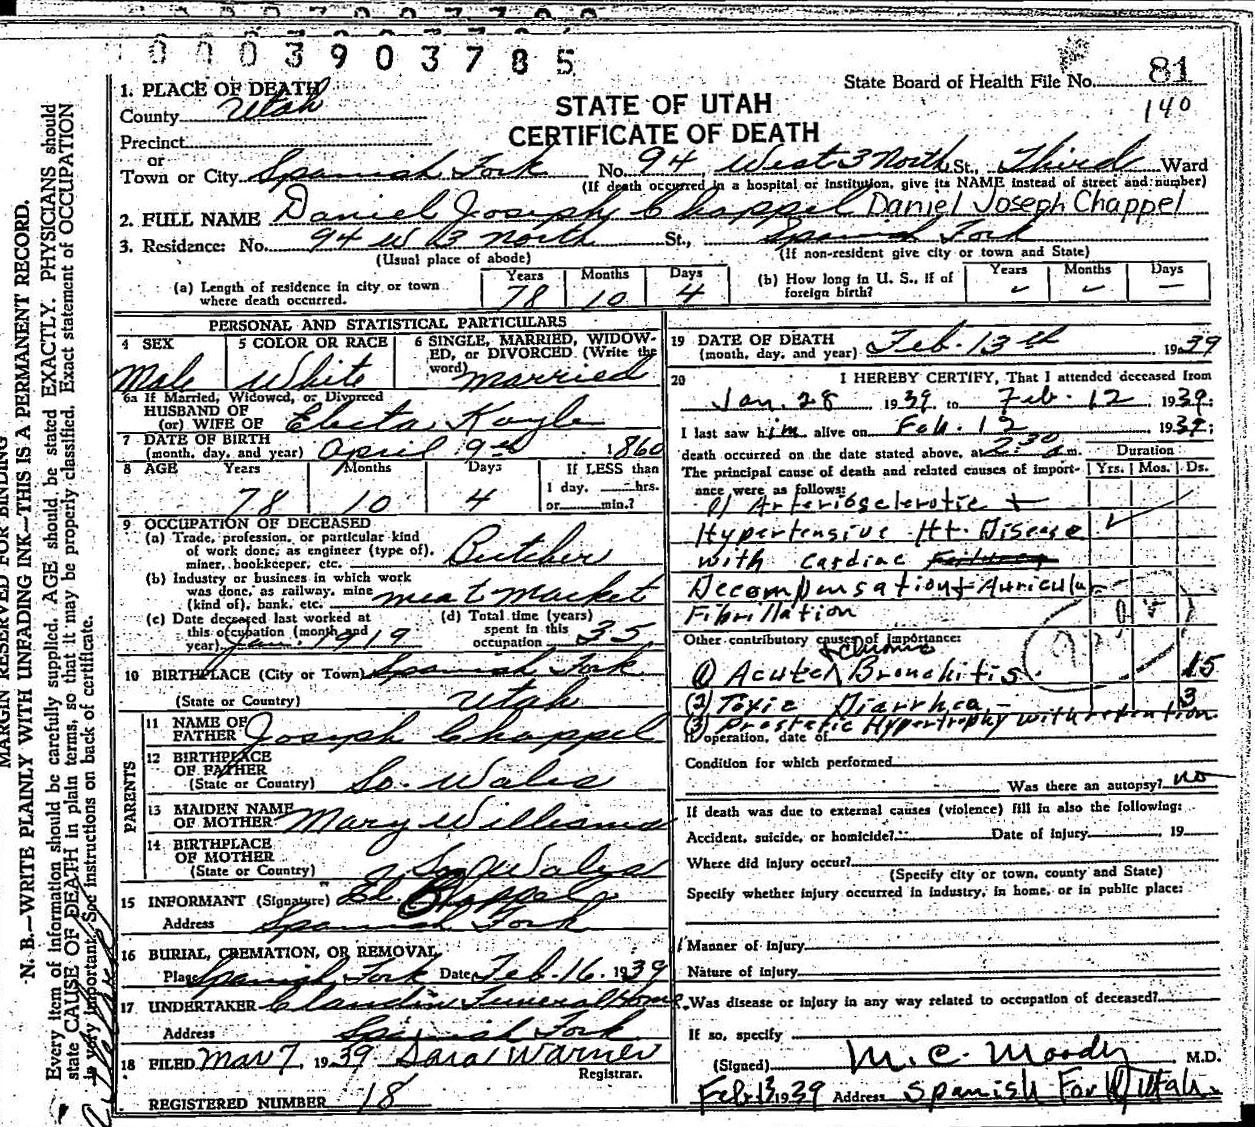 0003903785
State Board of Health File No. 81
140
STATE OF UTAH
CERTIFICATE OF DEATH
1. PLACE OF DEATH
County Utah
Precinct
or
Town or City Spanish Fork No. 94 West 3 North St., Third Ward
(If death occurred in a hospital or institution, give its NAME instead of street and number)
2. FULL NAME Daniel Joseph Chappel Daniel Joseph Chappel
3. Residence: No. 94 W 3 North St., Spanish Fork
(Usual place of abode) (If non-resident give city or town and State)
(a) Length of residence in city or town where death occurred. Years 78 Months 10 Days 4
(b) How long in U. S., if of foreign birth? Years - Months - Days -
PERSONAL AND STATISTICAL PARTICULARS
4 SEX Male
5 COLOR OR RACE White
6 SINGLE, MARRIED, WIDOWED, or DIVORCED (Write the word) married
6a If Married, Widowed, or Divorced
HUSBAND OF
(or) WIFE OF Electa Koyle
7 DATE OF BIRTH
(month, day, and year) April 9th 1860
8 AGE Years 78 Months 10 Days 4
If LESS than
1 day, hrs.
or min.?
9 OCCUPATION OF DECEASED
(a) Trade, profession, or particular kind
of work done, as engineer (type of),
miner, bookkeeper, etc. Butcher
(b) Industry or business in which work
was done, as railway, mine
(kind of), bank, etc. meat market
(c) Date deceased last worked at
this occupation (month and
year) Jan. 1919
(d) Total time (years)
spent in this
occupation 35
10 BIRTHPLACE (City or Town) Spanish Fork
(State or Country) Utah
PARENTS
11 NAME OF
FATHER Joseph Chappel
12 BIRTHPLACE
OF FATHER
(State or Country) So. Wales
13 MAIDEN NAME
OF MOTHER Mary Williams
14 BIRTHPLACE
OF MOTHER
(State or Country) So. Wales
15 INFORMANT (Signature) Chappel
Address Spanish Fork
16 BURIAL, CREMATION, OR REMOVAL
Place Spanish Fork Date Feb. 16. 1939
17 UNDERTAKER Claudin Funeral Home
Address Spanish Fork
18 FILED Mar 7, 1939 Sara Warner
Registrar.
REGISTERED NUMBER 18
19 DATE OF DEATH
(month, day, and year) Feb. 13th 1939
20 I HEREBY CERTIFY, That I attended deceased from
Jan. 28 1939 to Feb. 12 1939;
I last saw him alive on Feb. 12 1939;
death occurred on the date stated above, at 2:30 a m.
Duration
Yrs. Mos. Ds.
The principal cause of death and related causes of importance were as follows:
1) Arteriosclerotic +
Hypertensive Ht. Disease
with cardiac
Decompensation + Auricular
Fibrillation
Other contributory causes of importance:
(1) Acute + Chronic Bronchitis. 15
(2) Toxic Diarrhea - 3
(3) Prostatic Hypertrophy with retention
If operation, date of
Condition for which performed
Was there an autopsy? no
If death was due to external causes (violence) fill in also the following:
Accident, suicide, or homicide? Date of injury 19
Where did injury occur?
(Specify city or town, county and State)
Specify whether injury occurred in industry, in home, or in public place:
Manner of injury
Nature of injury
Was disease or injury in any way related to occupation of deceased?
If so, specify
(Signed) M. C. Moody M.D.
Feb 13 1939 Address Spanish Fork Utah.
MARGIN RESERVED FOR BINDING
N. B.—WRITE PLAINLY WITH UNFADING INK—THIS IS A PERMANENT RECORD.
Every item of information should be carefully supplied. AGE should be stated EXACTLY. PHYSICIANS should
state CAUSE OF DEATH in plain terms, so that it may be properly classified. Exact statement of OCCUPATION
is very important. See instructions on back of certificate.